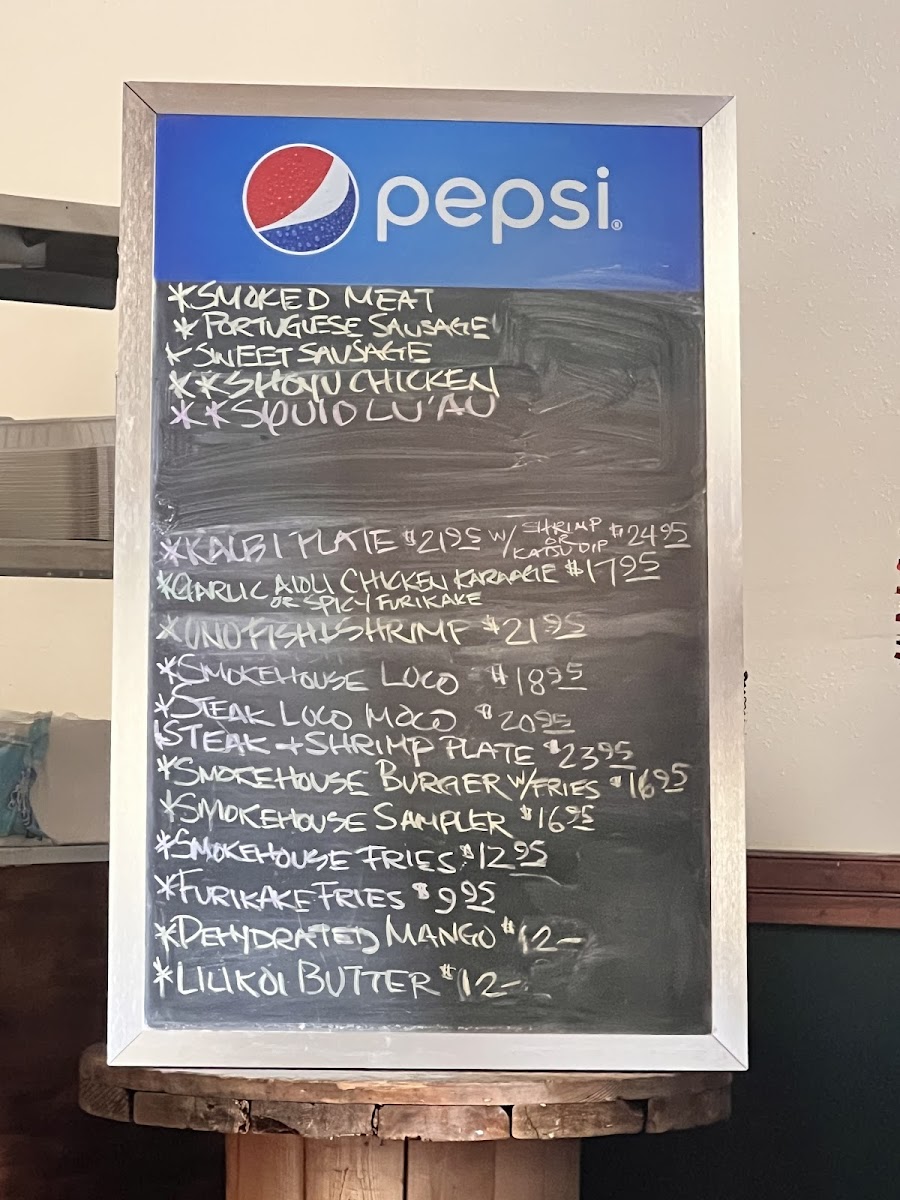 pepsi®
*SMOKED MEAT
*PORTUGUESE SAUSAGE
*SWEET SAUSAGE
**SHOYU CHICKEN
**SQUID LU'AU
*KALBI PLATE $21.95 W/ SHRIMP OR KATSU DIP $24.95
*GARLIC AIOLI CHICKEN KARAAGE $17.95
OR SPICY FURIKAKE
*ONO FISH + SHRIMP $21.95
*SMOKEHOUSE LOCO $18.95
*STEAK LOCO MOCO $20.95
STEAK + SHRIMP PLATE $23.95
*SMOKEHOUSE BURGER W/FRIES $16.95
*SMOKEHOUSE SAMPLER $16.95
*SMOKEHOUSE FRIES $12.95
*FURIKAKE FRIES $9.95
*DEHYDRATED MANGO $12-
*LILIKOI BUTTER $12-